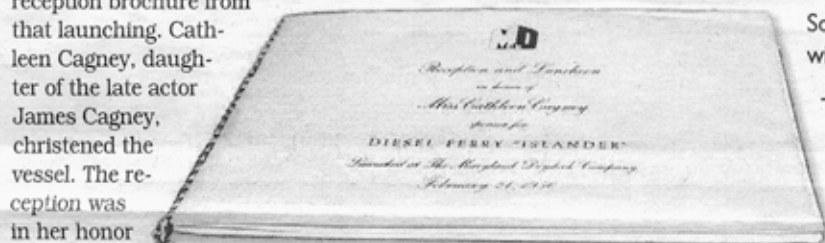 reception brochure from
that launching. Cath-
leen Cagney, daugh-
ter of the late actor
James Cagney,
christened the
vessel. The re-
ception was
in her honor
MD
Reception and Luncheon
in honor of
Miss Cathleen Cagney
sponsor for
DIESEL FERRY "ISLANDER"
Launched at The Maryland Drydock Company
February 21,